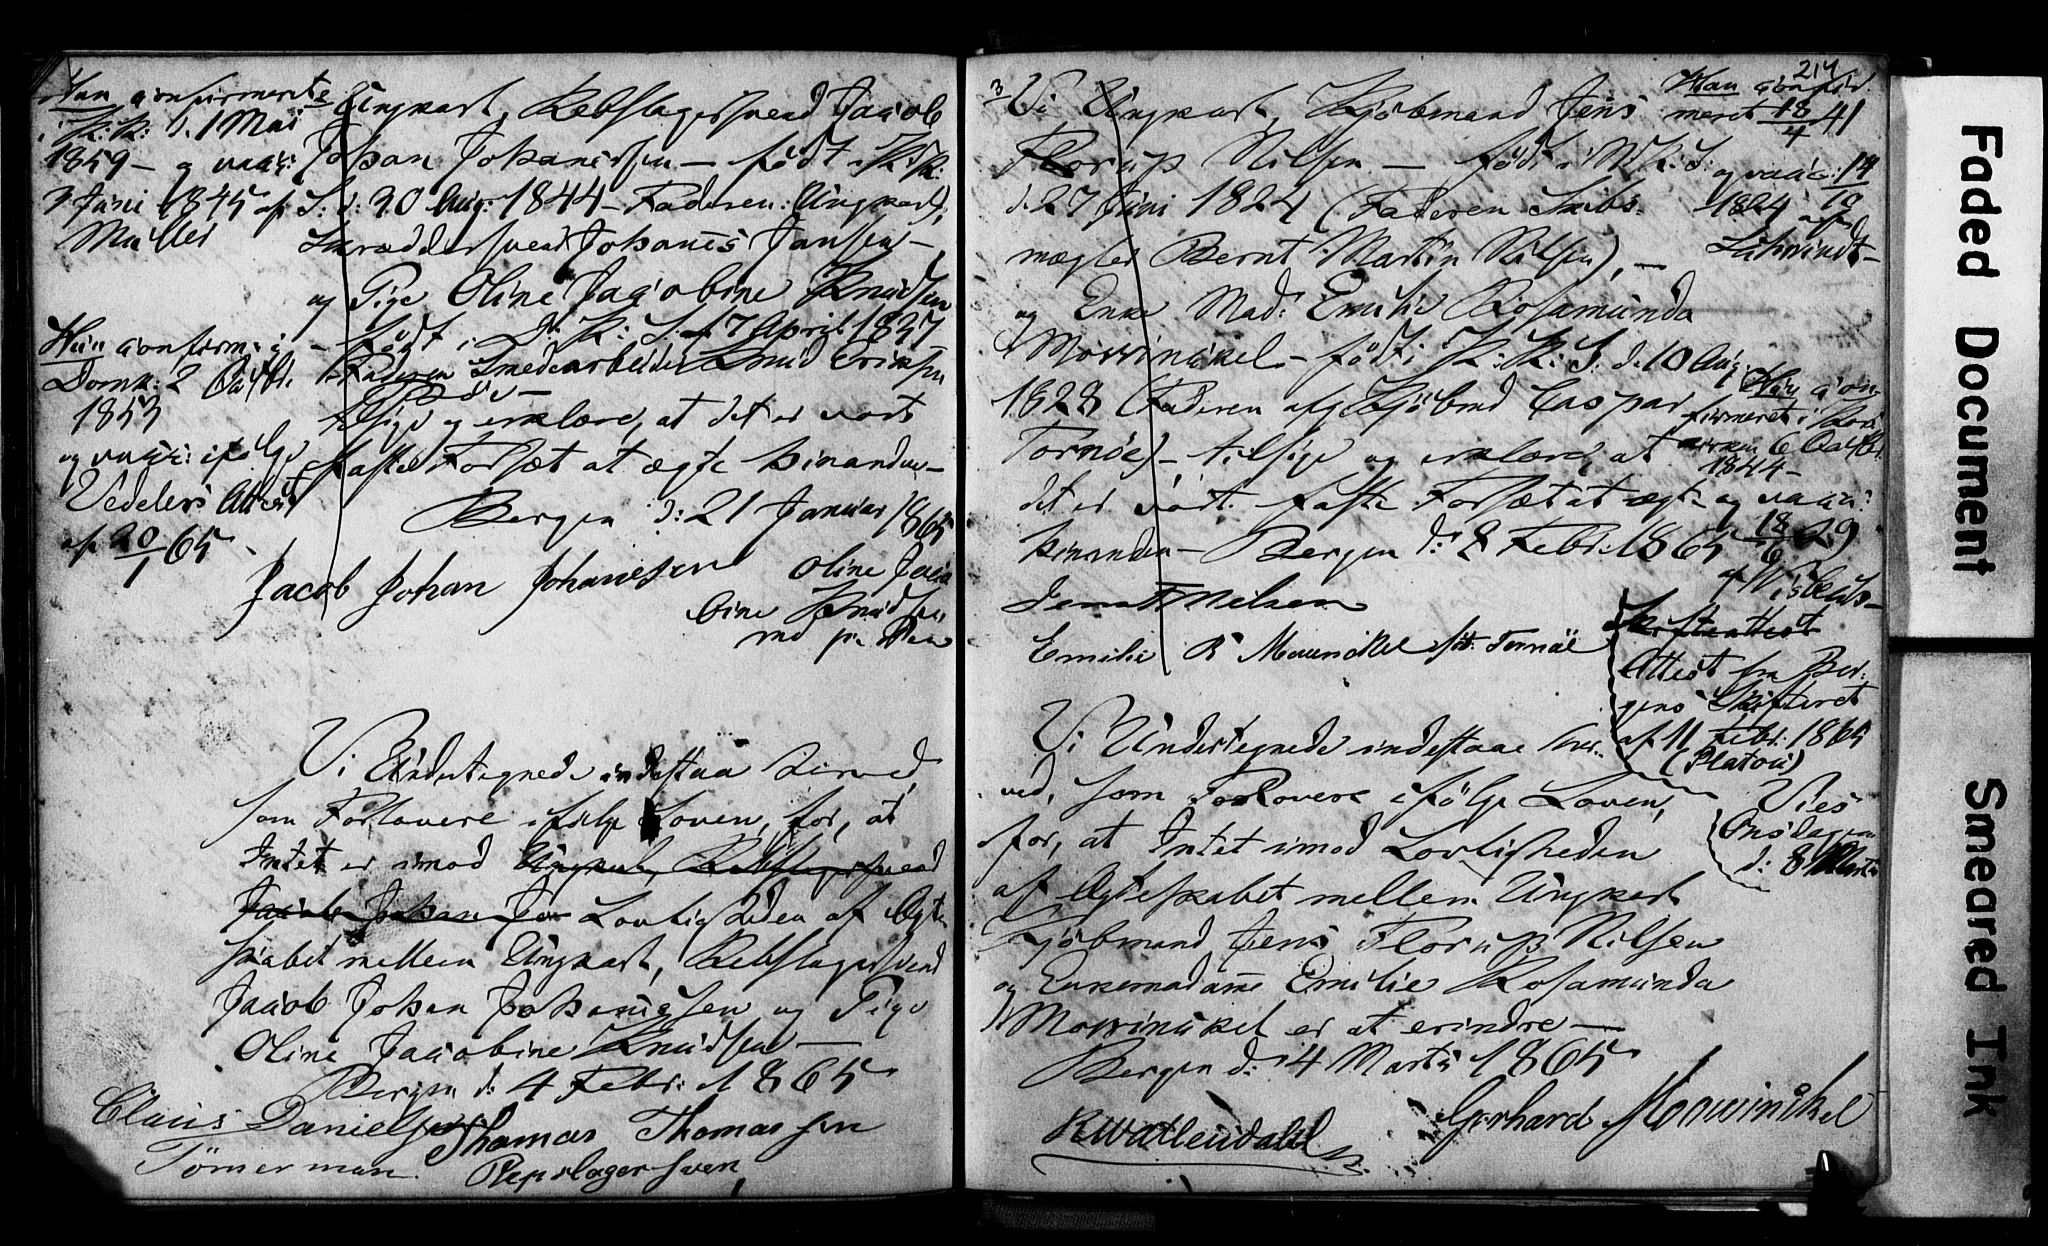 Han confirmeret
i K: K: d. 1 Mai
1859 – og vacc:
3 Juni 1845 af
Müller
Hun confirm: i
Domk: 2 Octbr.
1853
og vacc: ifølge
Vedelers Attest
af 20/1 65
Ungkarl, Rebslagersvend Jacob
Johan Johannessen – født i K: K:
S. d: 20 Aug: 1844 – Faderen: Ungkarl,
Skræddersvend Johannes Jansen –
og Pige Oline Jacobine Knudsen
– født i D. K: S. d 7 April 1837
Faderen Smedearbeider Knud Eriksen
tilsige og erklære, at det er vort
faste Forsæt at ægte hinanden –
Bergen d: 21 Januar 1865
Jacob Johan Johannesen
Oline Jaco
bine Knudsen
med p: Pen
Vi Undertegnede indestaa herved,
som Forlovere ifølge Loven, for, at
Intet er imod Ungkarl, Rebslagersvend
Jacob Johan Jo Lovligheden af Ægte
skabet mellem Ungkarl, Rebslagersvend
Jacob Johan Johannessen og Pige
Oline Jacobine Knudsen –
Bergen d: 4 Febr: 1865
Claus Danielsen
Tømerman
Thomas Thomassen
Repslagersven
214
3
Vi Ungkarl, Kjøbmand Jens
Florup Nilsen – født i N. K: S:
d. 27 Juni 1824 (Faderen Skibs-
mægler Bernt Martin Nilsen), –
og Enke Mad: Emilie Rosamunda
Mowinckel – født i K: K: S. d. 10 Aug:
1828 (Faderen afg Kjøbmd Caspar
Tornöe) – tilsige og erklære, at
det er vort faste Forsæt at ægte
hinanden – Bergen d: 8 Febr: 1865
Jens F Nielsen
Emilie R Mowinckel født Tornöe
Han confir-
meret 18/4 41
og vacc: 14/10
1824 af
Schwindt –
Hun con-
firmeret i Kors
kirken 6 Octbr.
1844 –
og vacc:
18/6 29
af Wisbech –
Skifteattest
Attest fra Ber-
gens Skifteret
af 11 Febr: 1865
(Platou)
Vies
Onsdagen
d: 8 Marts
Vi Undertegnede indestaae her-
ved, som Forlovere ifølge Loven,
for, at Intet imod Lovligheden
af Ægteskabet mellem Ungkarl
Kjöbmand Jens Florup Nilsen
og Enkemadame Emilie Rosamunda
Mowinckel er at erindre –
Bergen d: 4 Marts 1865
RWallendahl
Gerhard Mowinckel
Faded Document
Smeared Ink